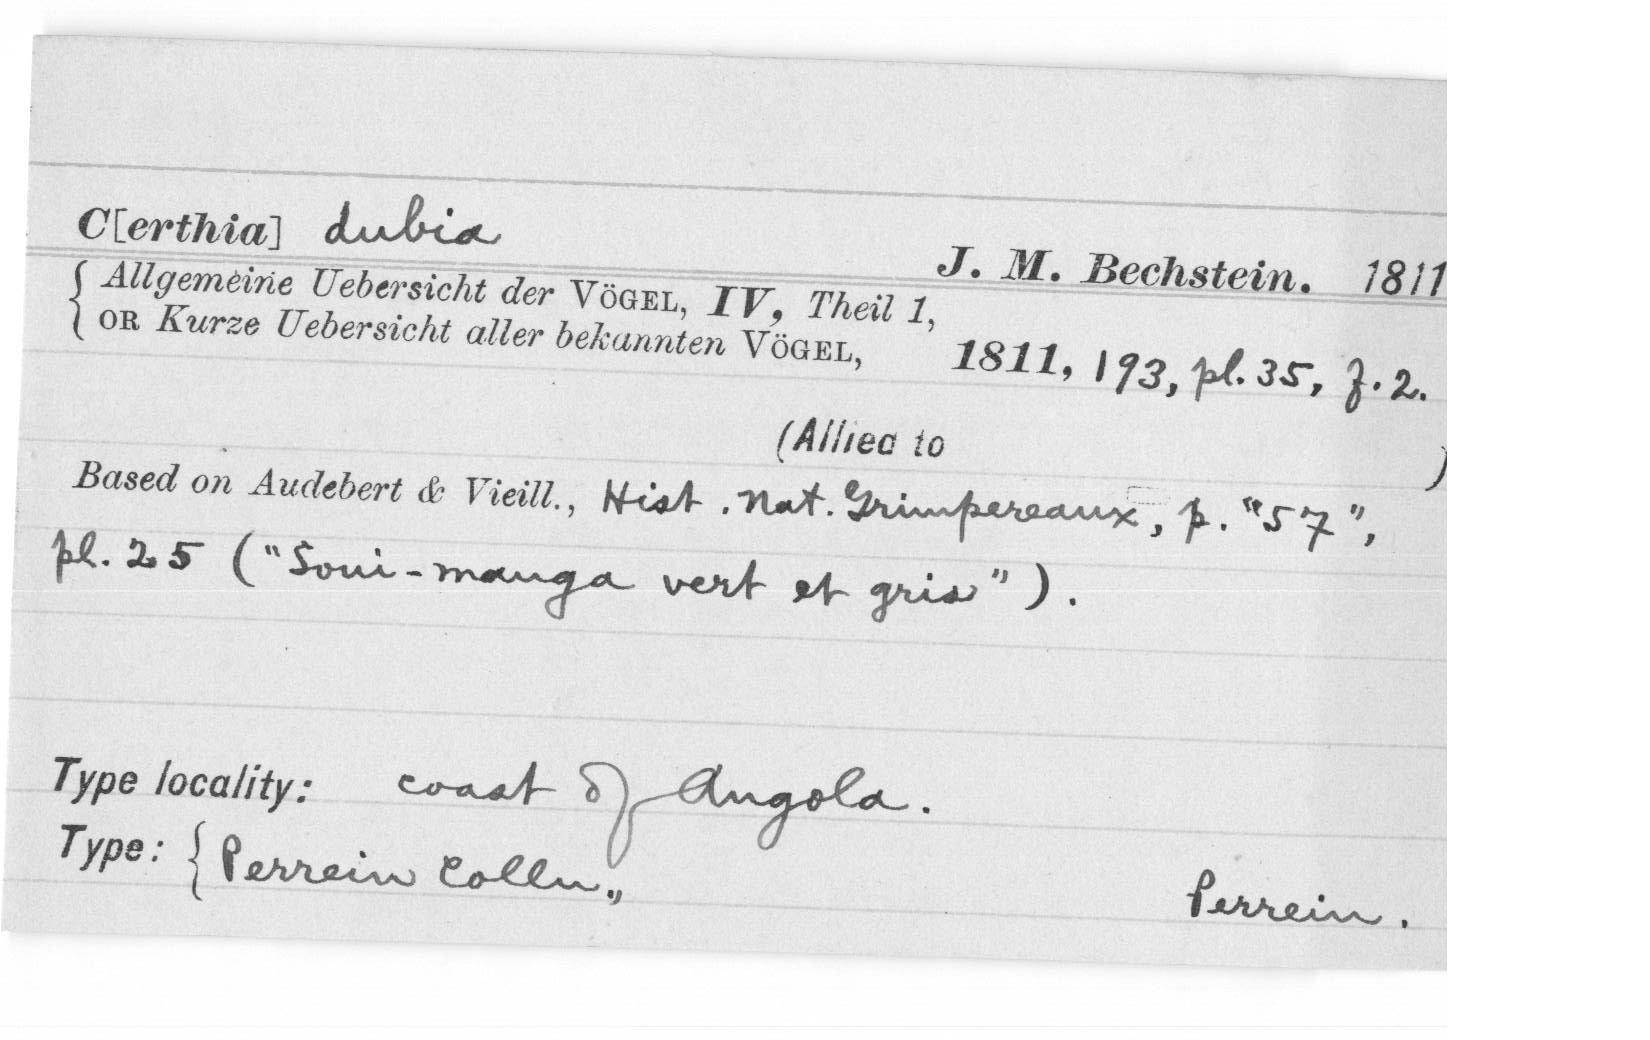 C[erthia] dubia
J. M. Bechstein. 1811
{ Allgemeine Uebersicht der VÖGEL, IV, Theil 1,
{ OR Kurze Uebersicht aller bekannten VÖGEL, 1811, 193, pl. 35, f. 2.
(Allied to )
Based on Audebert & Vieill., Hist. Nat. Grimpereaux, p. "57",
pl. 25 ("Soui-manga vert et gris").
Type locality: coast of Angola.
Type: { Perrein Colln., Perrein.